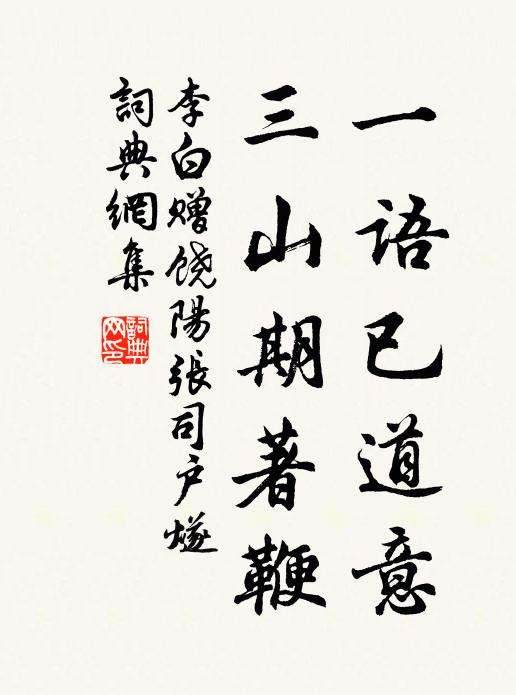 一語已道意
三山期著鞭
李白贈饒陽張司户燧
詞典網集
詞典網印